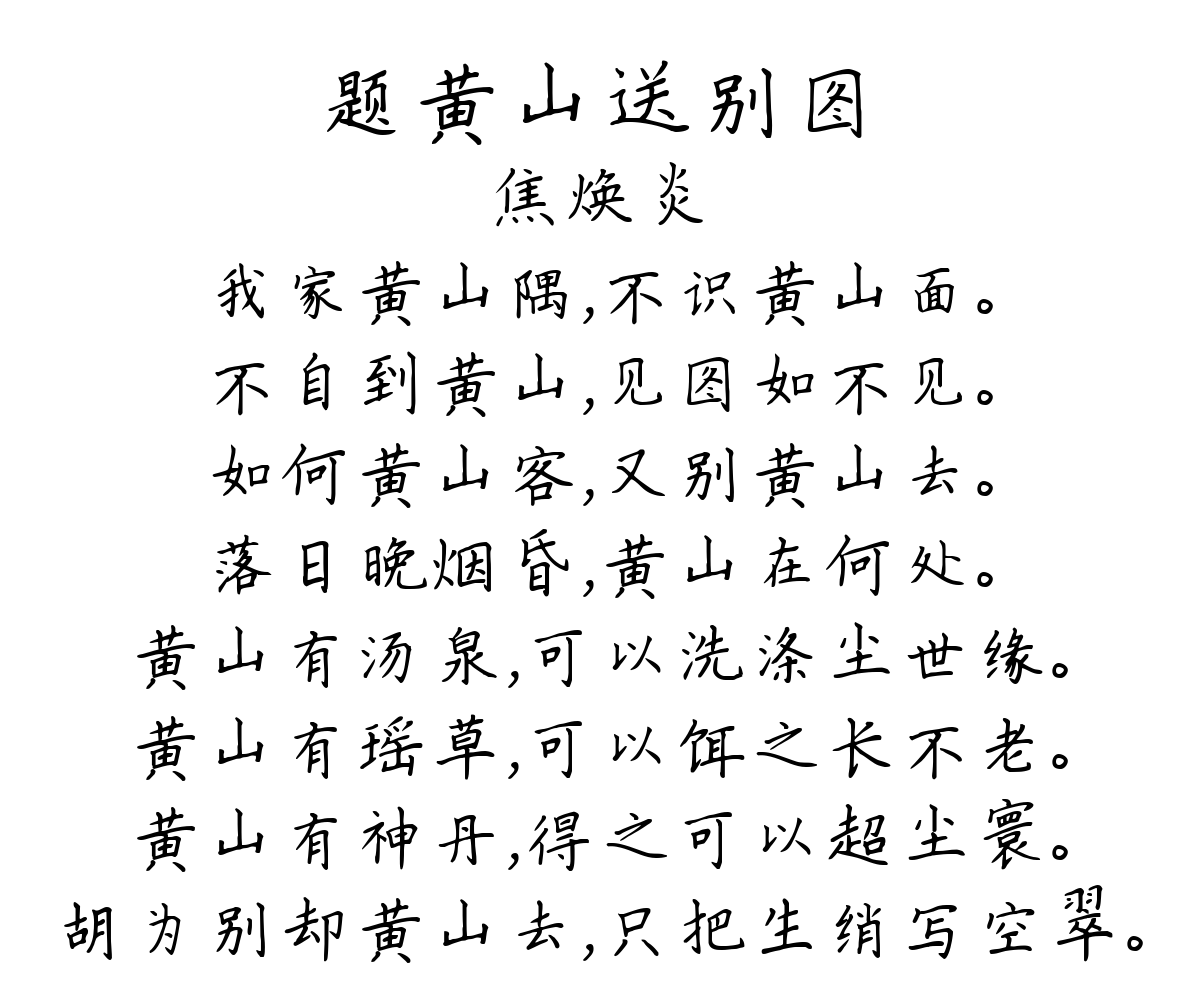 题黄山送别图
焦焕炎
我家黄山隅,不识黄山面。
不自到黄山,见图如不见。
如何黄山客,又别黄山去。
落日晚烟昏,黄山在何处。
黄山有汤泉,可以洗涤尘世缘。
黄山有瑶草,可以饵之长不老。
黄山有神丹,得之可以超尘寰。
胡为别却黄山去,只把生绡写空翠。